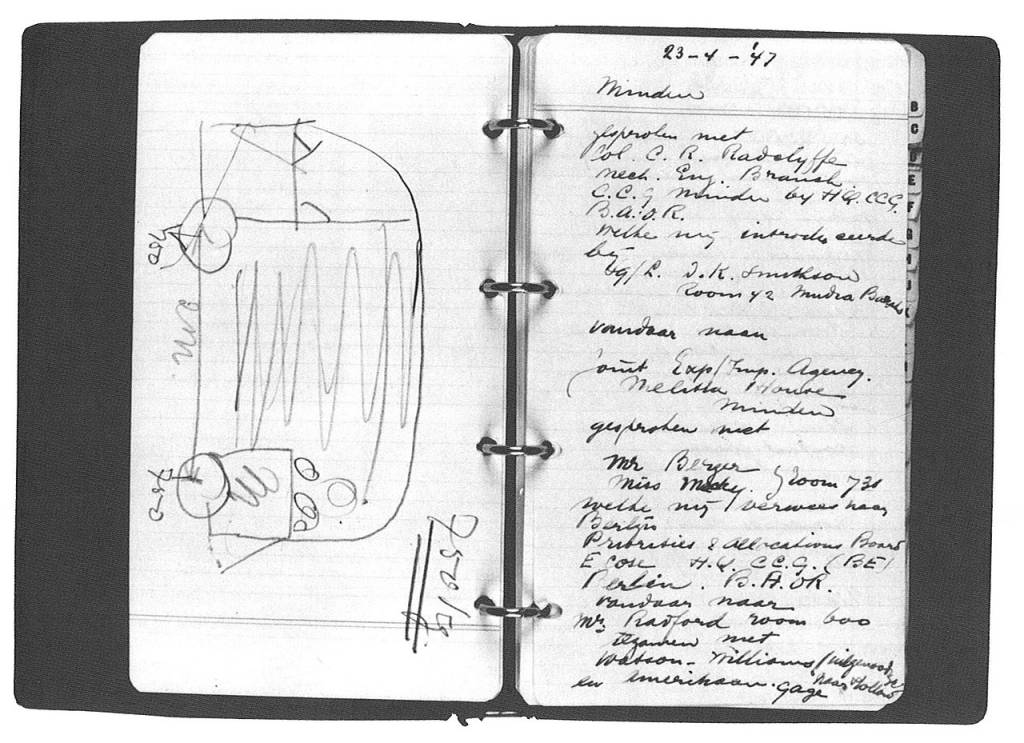 750
750
750/5
23-4-'47
Minden
gesproken met
Col. C. R. Radclyffe
Mech. Eng. Branch.
C.C.G Minden by HQ. CCG.
B.A.O.R.
welke mij introduceerde
bij
D.K. Smithson
Room 42
vandaar naar
Joint Exp/Imp. Agency.
Melitta House
Minden
gesproken met
Mr Berger
Miss Room 731
welke mij verwees naar
Berlijn
Priorities & Allocations Board
H.Q. C.C.G. (BE)
Berlin. B.A.O.R.
vandaar naar
Mr Radford room 600
tezamen met
Watson-Williams
en Amerikaan. Gage
B
C
D
E
F
G
H